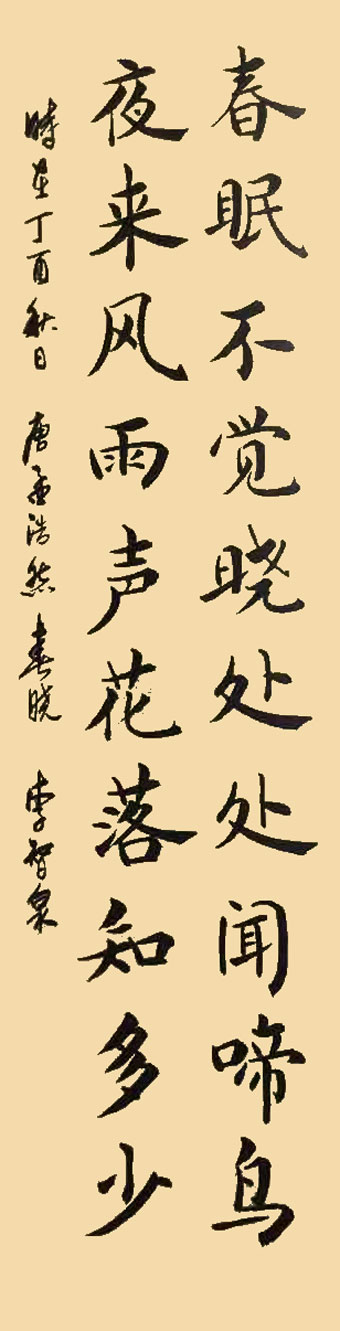 春眠不觉晓处处闻啼鸟
夜来风雨声花落知多少
時在丁酉秋日 唐孟浩然春晓 李智泉